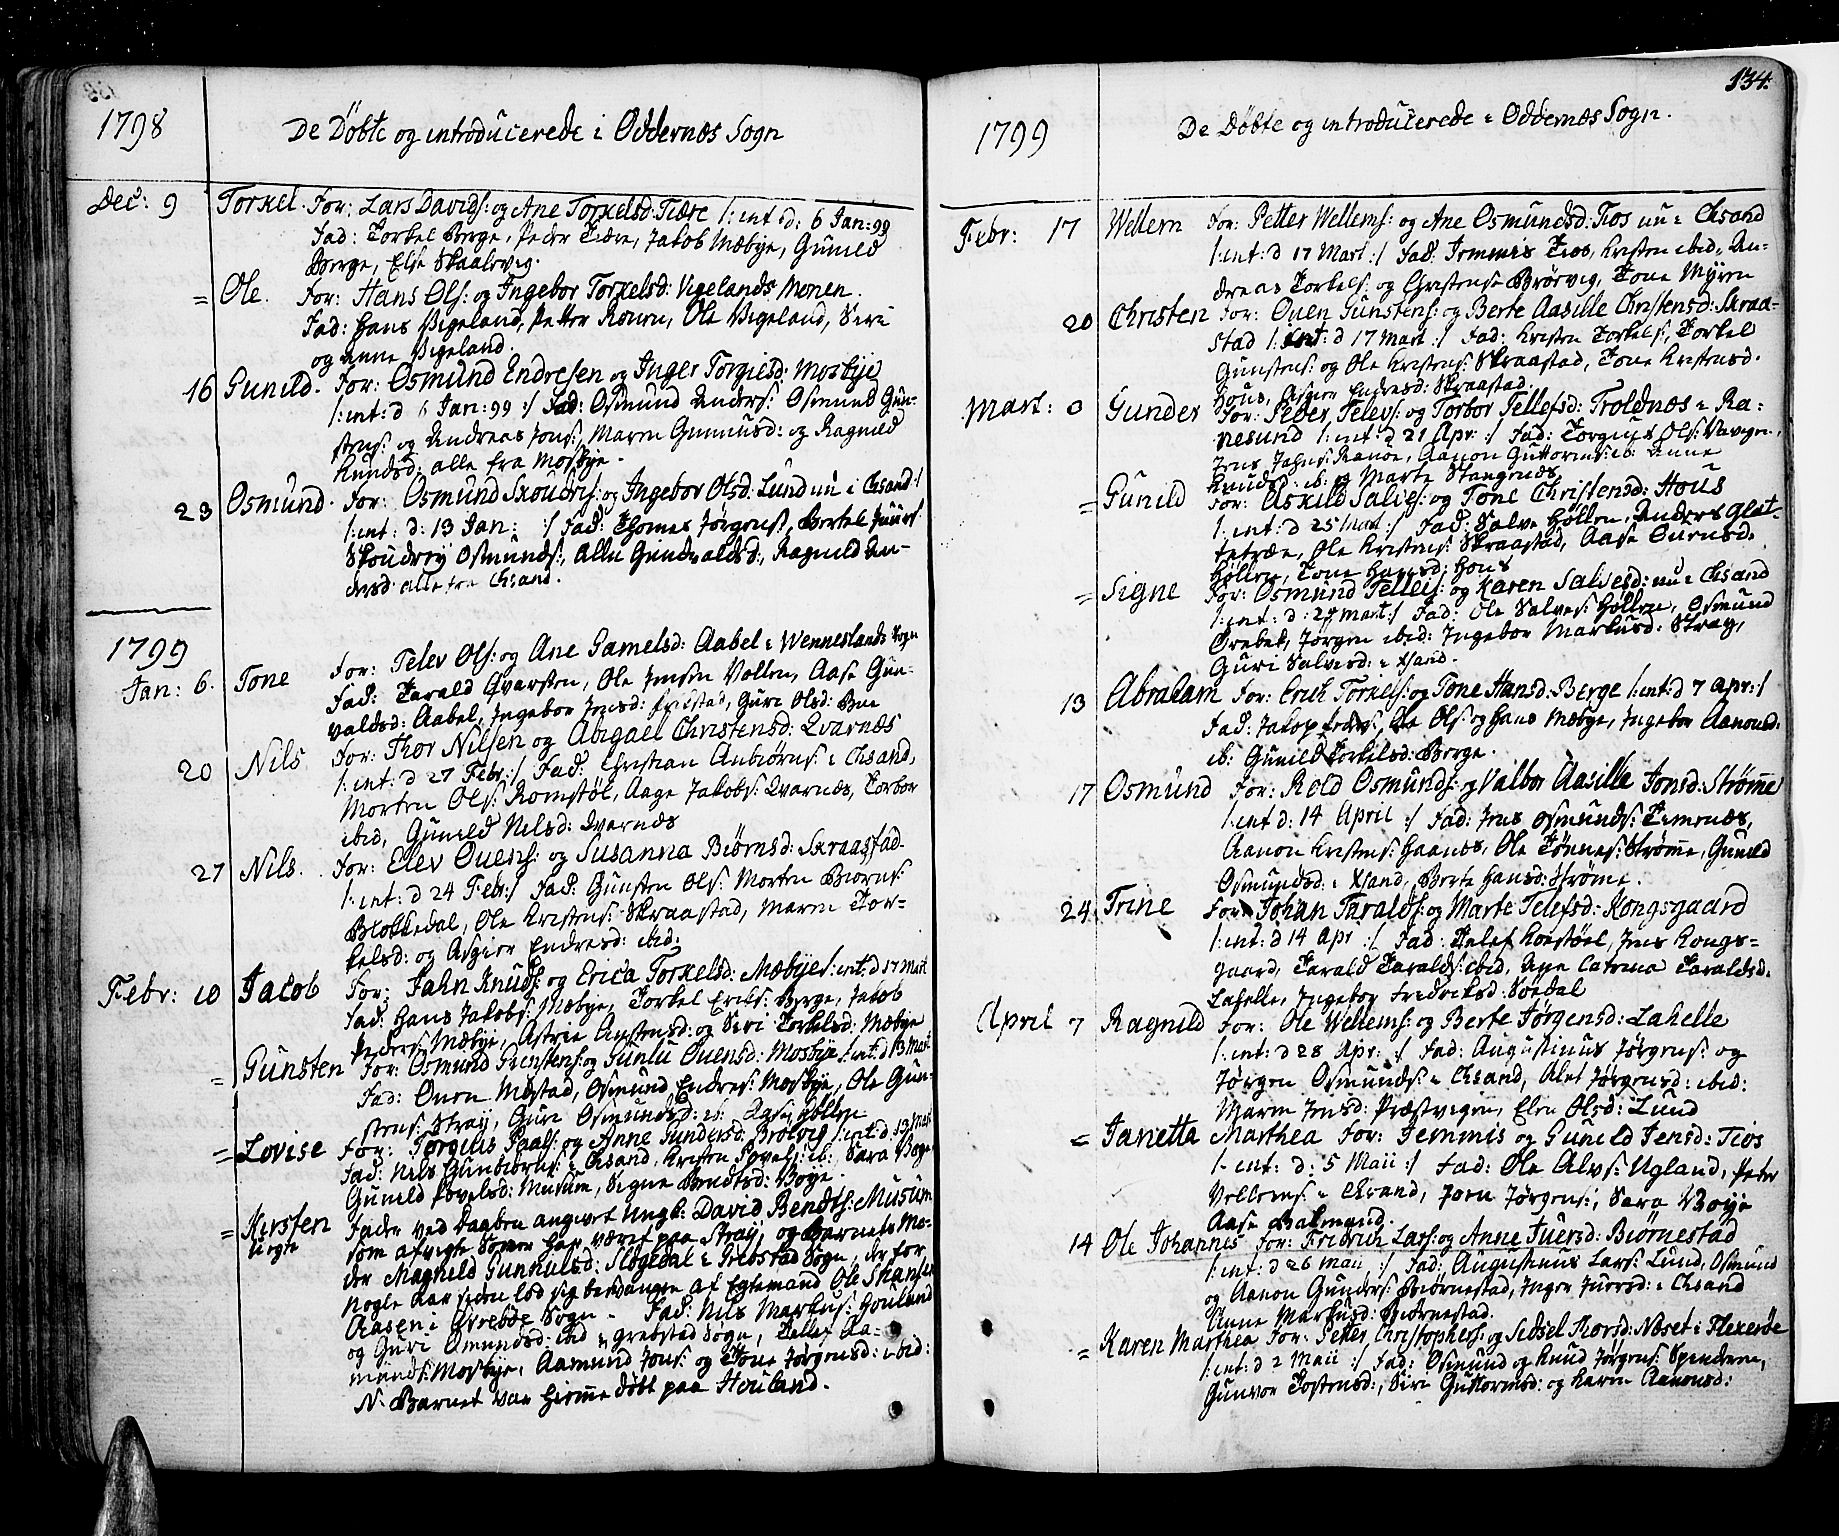 1798
De Döbte og introducerede i Oddernæs Sogn
Dec: 9 Torkel. For: Lars Davids: og Ane Torkelsd: Tiære /: int: d: 6 Jan: 99
Fad: Torkel Berge, Peder Tiære, Jakob Mæbye, Gunild
Berge, Else Skaalevig.
= Ole. For: Hans Ols: og Ingebor Torkelsd: Vigelands Monen.
Fad: Hans Vigeland, Petter Ronen, Ole Vigeland, Siri
og Anne Vigeland.
16 Gunild. For: Osmund Endresen og Inger Torgiesd: Mosbye
/: int: d 6 Jan: 99 :/ Fad: Osmund Anders: Osmund Gun-
stens: og Andreas Jons: Maren Gunnusd: og Ragnild
Knudsd: alle fra Mosbye.
23 Osmund. For: Osmund Skoudrs: og Ingebor Olsd: Lund nu i Chsand:/
/: int: d: 13 Jan: :/ Fad: Thomes Jörgens:, Bertel
Osmunds:, Gundvaldsd:, Ragnild An-
dersd: alle fra Chsand.
1799
Jan: 6. Tone For: Telev Ols: og Ane Gamelsd: Aabel i Wenneslands Sogn
Fad: Tarald Qvarsten, Ole Jensen Vollen, Aase Gun-
valdsd: Aabel, Ingebor Jensd: Guri Olsd:
20 Nils For: Thor Nilsen og Abigael Christensd: Qvarnæs
/: int: d 27 Febr:/ Fad: Christian Anbiörns: i Chsand,
Morten Ols: Romstöl, Aage Jakobs: Qvarnæs, Torbor
ibid, Gunild Nilsd: Qvarnæs
27 Nils. For: Elev Ouens: og Susanna Biörnsd: Skraastad.
/: int: d 24 Febr:/ Fad: Gunsten Ols: Morten Biorns:
Blokkedal, Ole Kristens: Skraastad, Maren Tor-
kelsd: og Asgier Endresd: ibid:
Febr: 10 Jacob For: Jahn Knuds: og Erica Torkelsd: Mæbye /: int: d 17 Mart
Fad: Hans Jakobs: Mæbye, Torkel Eriks: Berge, Jakob
Peders: Mæbye, Astrie og Siri Torkelsd: Mæbye
= Gunsten For: Osmund Gunstens: og Gunlu Ouensd: Mosbye /: int: d 13 Mart
Fad: Ouen Mæstad, Osmund Endres: Mosbye, Ole Gun-
stens: Stray, Guri Osmundsd: Hollen
= Lovise For: Torgius Paals: og Anne Gundersd: Brolvig /: int: d: 13 Mart
Fad: Nils Gunbiorns: i Chsand, Kristen Povels: ib: Sara Boye
Gunild Povelsd: Musum, Signe Bendtsd: Boye.
= Kirsten Fader ved Daaben angivet Ungk: David Bendts: Musum
Uegte som afvigte Somer har været paa Stray, og Barnets Mo-
der Magnild Gunnulsd: Slogedal i Grebstad Sogn, der for
Nogle Aar siden lod sig besvangre af Egtemand Ole Skansen
Aasen i Övreböe Sogn. Fad: Nils Markus: Houland
og Guri Omundsd: ibid i Grebstad Sogn, Tellef Aa-
munds: Mosbye, Aamund Jons: og Tone Jörgensd: ibid:
N. Barnet var hieme döbt paa Houland.
134.
1799
De Döbte og introducerede i Oddernæs Sogn.
Febr: 17 Wellem For: Petter Wellems: og Ane Osmundsd: Tios nu i Chsand
/: int: d 17 Mart :/ Fad: Jemmis Tios, Kristen ibid:, An-
dreas Torkels: og Christense Brörvig, Tone Myren
20 Christen For: Ouen Gunstens: og Berte Aasille Christensd: Skraa-
stad /: int: d 17 Mart :/ Fad: Kristen Torkels: Torkel
Gunstens: og Ole Kristens: Skraastad, Tone Kristensd.
Hous, Asgier Endresd: Skraastad.
Mart: 0 Gunder For: Peder Televs: og Torbor Tellefsd: Troldnæs i Ra:
nesund /: int: d 21 Apr :/ Fad: Torgius Ols:
Jens Jahns: Ranöe, Aanon Guttorms: ib: Anne
Knudsd: ib: og Marte Stangenæs
= Gunild For: Askild Salves: og Tone Christensd: Hous
/: int: d 25 Mart :/ Fad: Salve Höllen, Anders Glat-
tetræe, Ole Kristens: Skraastad, Aase Ouensd.
Höllen, Tone Hansd: Hous
= Signe For: Osmund Telleis: og Karen Salvesd: nu i Chsand
/: int: d: 29 Mart:/ Fad: Ole Salves: Höllen, Osmund
Örebek, Jörgen ibid: Ingebor Markusd: Stray,
Guri Salvesd: i Xsand.
13 Abraham For: Erich Torkels: og Tone Hansd: Berge /: int: d 7 Apr:/
Fad: Jakop Peders:, Ole Ols: og Hans Mæbye, Ingebor Aanonsd:
ib: Gunild Torkelsd: Berge.
17 Osmund For: Rold Osmunds: og Valbor Aasille Jonsd: Strömme
/: int d: 14 April :/ Fad: Jens Osmunds: Timenæs,
Aanon Kristens: Haanes, Ole Tönnes: Strömme, Gunild
Osmundsd: i Xsand, Berte Hansd: Ströme.
24. Trine For: Johan Taralds: og Marte Telefsd: Kongsgaard
/: int: d 14 Apr :/ Fad: Telef Korstöel, Jens Kongs=
gaard, Tarald Taralds: ibid, Ane Catrina Taraldsd.
Lahelle, Ingebor Fredriksd: Soedal
April 7 Ragnild For: Ole Wellems: og Berte Jörgensd: Lahelle
/: int: d 28 Apr: :/ Fad: Augustinus Jörgens: og
Jörgen Osmunds: i Chsand, Alet Jörgensd: ibid:
Maren Jensd: Præstvigen, Elen Olsd: Lund
= Janetta Marthea For: Jemmis og Gunild Jensd: Tios
/: int: d: 5 Maii :/ Fad: Ole Alvs: Ugland, Peter
Vellems: i Chsand, Jorn Jörgens:, Sara Boye
Aase Balmand.
14 Ole Johannes For: Fridrich Lars: og Anne Iuersd: Biörnestad
/: int: d 26 Maii :/ Fad: Augustinus Lars: Lund, Osmund
og Aanon Gunders: Biörnestad, Inger Iuersd: i Chsand
Anne Markusd: Biörnestad.
= Karen Marthea For: Petter Christophers: og Sidsel Thorsd: Næset i Flekeröe
/: int: d 2 Maii :/ Fad: Osmund og Knud Jörgens: Spenderen,
Gunvor Tostensd:, Siri Guttormsd: og Karen Aanonsd: